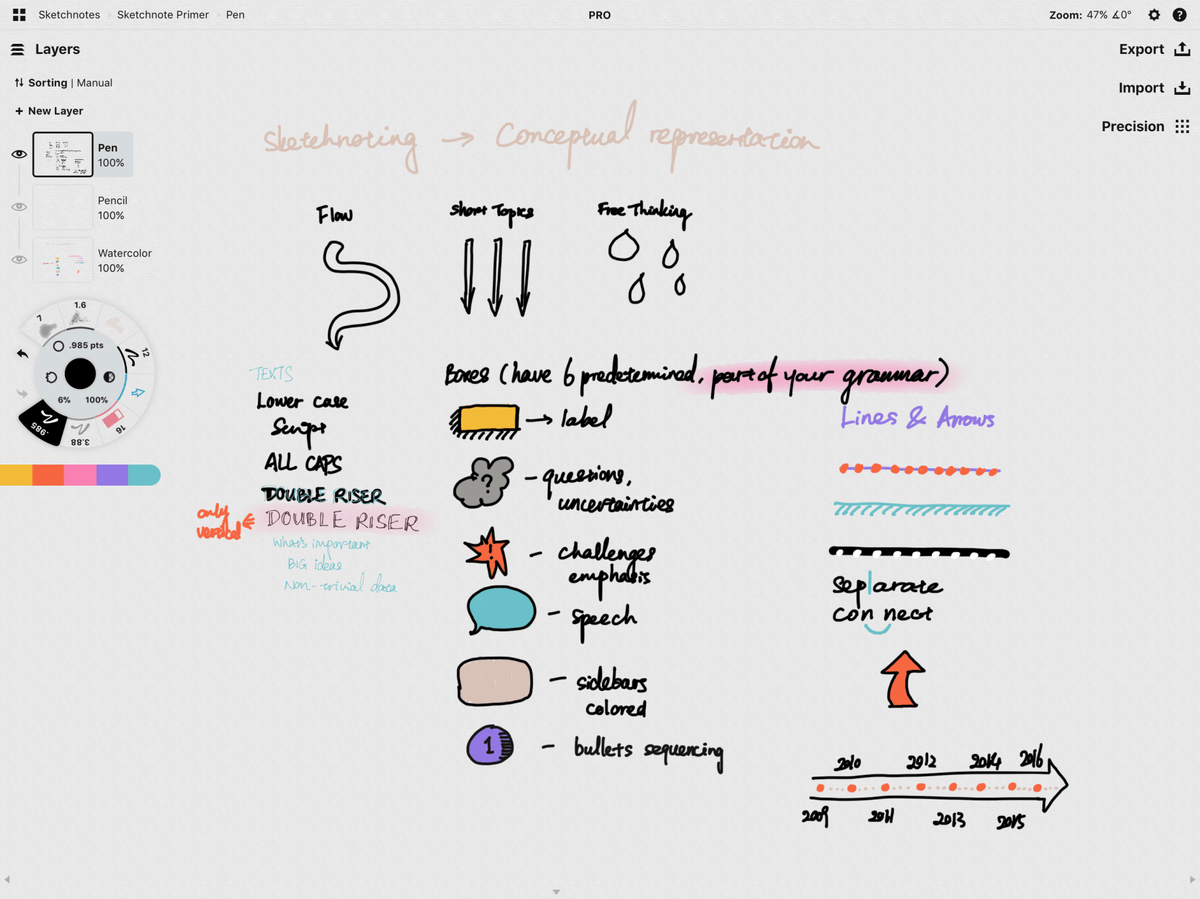 Sketchnotes Sketchnote Primer Pen
PRO
Zoom: 47% ∡0°
Layers
Sorting | Manual
+ New Layer
Pen
100%
Pencil
100%
Watercolor
100%
Export
Import
Precision
1.6
7
12
.985 pts
6% 100%
.985
3.88
16
Sketchnoting → Conceptual representation
Flow
Short Topics
Free Thinking
TEXTS
Lower case
Script
ALL CAPS
DOUBLE RISER
DOUBLE RISER
only
vertical
What's important
BIG ideas
Non-trivial data
Boxes (have 6 predetermined, part of your grammar)
→ label
?
- questions,
uncertainties
!
- challenges
emphasis
- speech
- sidebars
colored
1
- bullets sequencing
Lines & Arrows
Separate
Connect
2010 2012 2014 2016
2009 2011 2013 2015